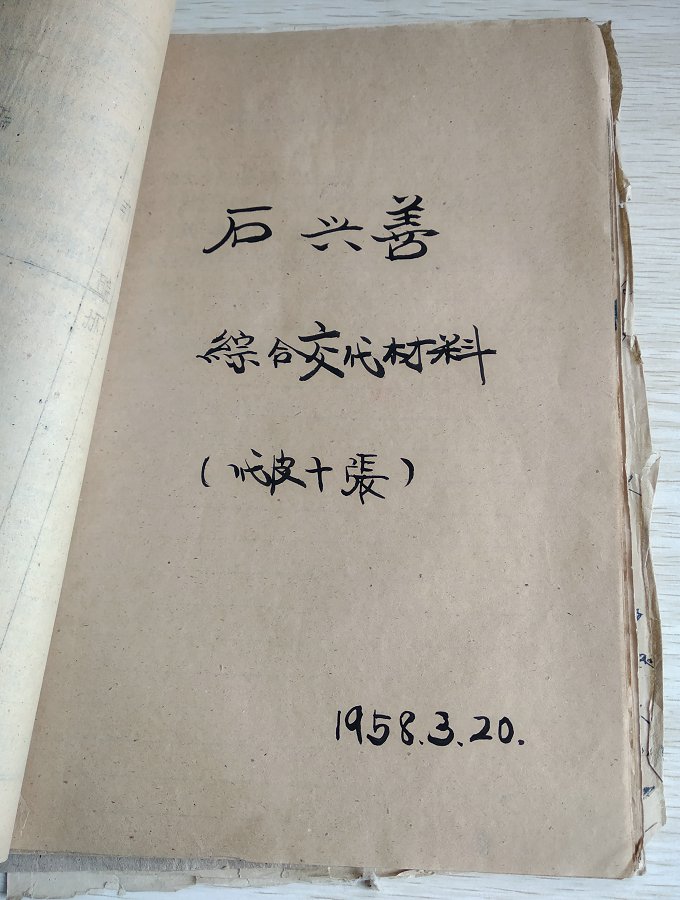 石兴善
綜合交代材料
(代皮十張)
1958.3.20.